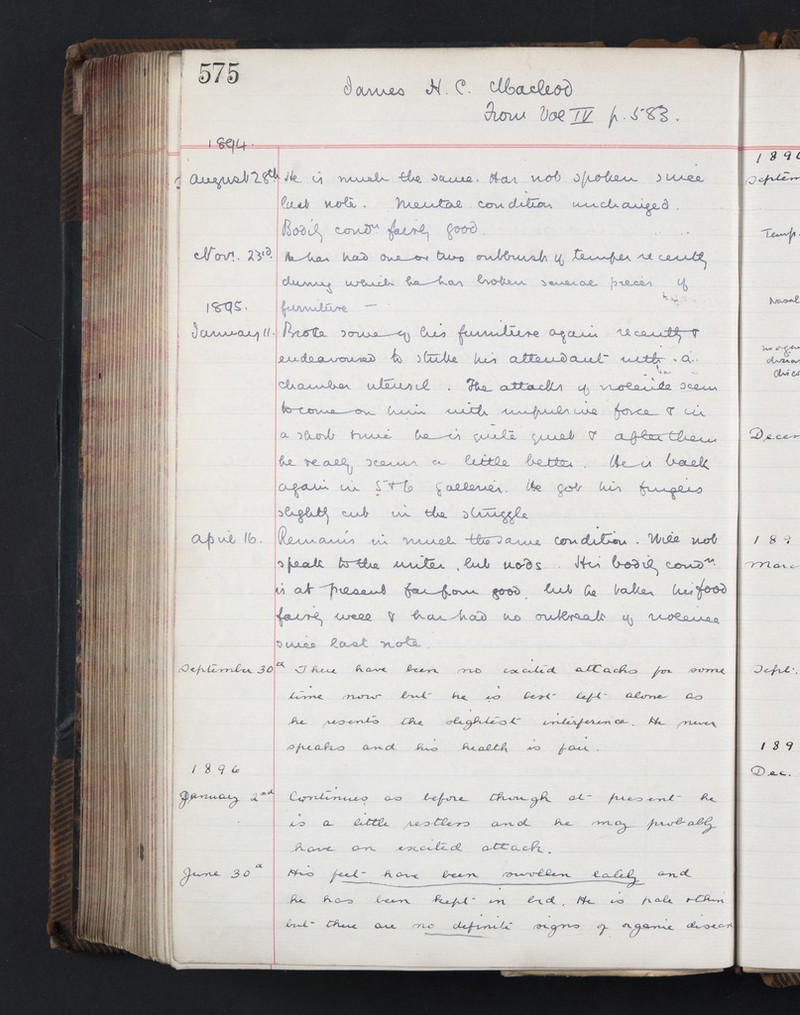 575
James H. C. Macleod
From Vol IV p. 583.
1894.
August 28th He is much the same. Has not spoken since
last note. Mental condition unchanged.
Bodily condn fairly good.
Novr. 23rd. He has had one or two outbursts of temper recently
during which he has broken several pieces of
1895. furniture —
January 11. Broke some of his furniture again recently &
endeavoured to strike his attendant with a
chamber utensil. The attacks of violence seem
to come on him with impulsive force & in
a short time he is quite quiet & after them
he really seems a little better. He is back
again in 5 & 6 galleries. He got his fingers
slightly cut in the struggle
April 16. Remains in much the same condition. Will not
speak to the writer, but nods. His bodily condn
is at present far from good, but he takes his food
fairly well & has had no outbreak of violence
since last note.
September 30th There have been no excited attacks for some
time now but he is best left alone as
he resents the slightest interference. He never
speaks and his health is fair.
1896
January 2nd Continues as before though at present he
is a little restless and he may probably
have an excited attack.
June 30th His feet have been swollen lately and
he has been kept in bed. He is pale & thin
but there are no definite signs of organic disease
189
Septem
Temp.
Nasal
Decem
189
Marc
Sept.
189
Dec.